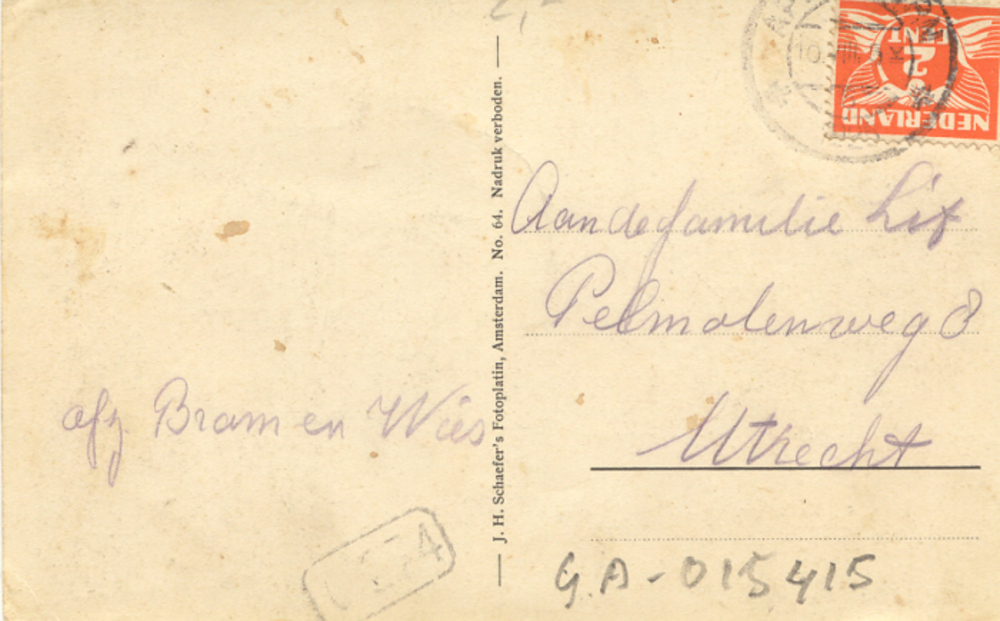 2,-
afz Bram en Wies
J. H. Schaefer's Fotoplatin, Amsterdam. No. 64. Nadruk verboden.
NEDERLAND
2
CENT
10 VIII
Aan de familie Lix
Pelmolenweg 8
Utrecht
G.A-015415